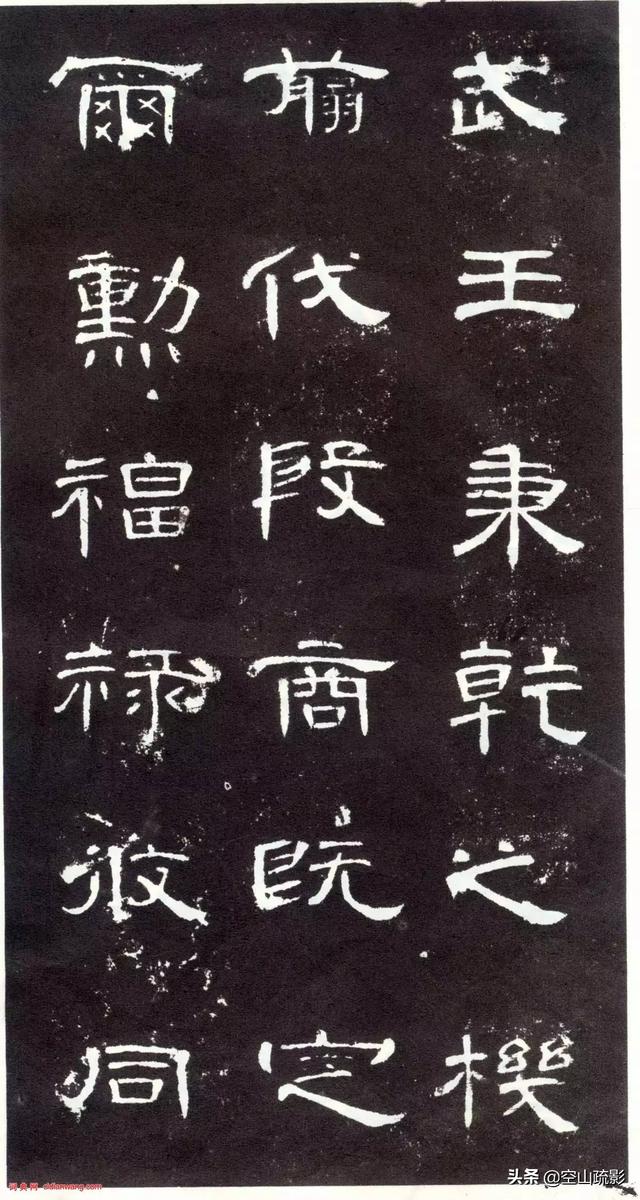 武王秉乾之機
翦伐殷商既定
爾勳福祿攸同
词典网 cidianwang.com
头条 @空山疏影